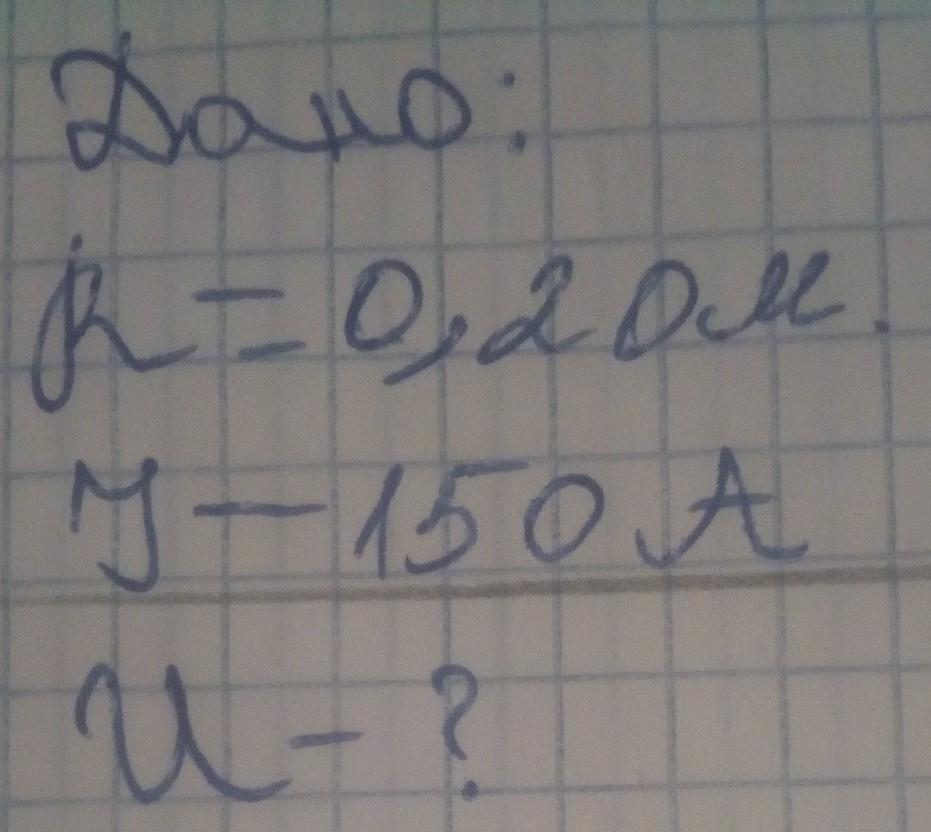 Дано:
R = 0,2 Ом.
I — 150 А
U - ?